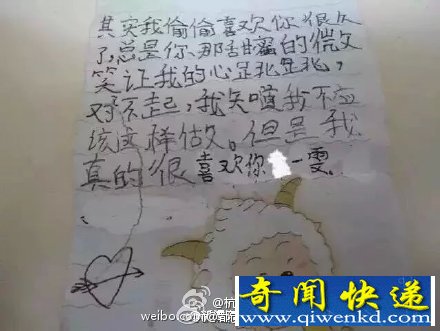 其实我偷偷喜欢你很久
了,总是你那甜蜜的微
笑让我的心
对不起,我知道我不应
该这样做。但是我
真的很喜欢你 一雯
奇闻快递
www.qiwenkd.com
weibo.com/